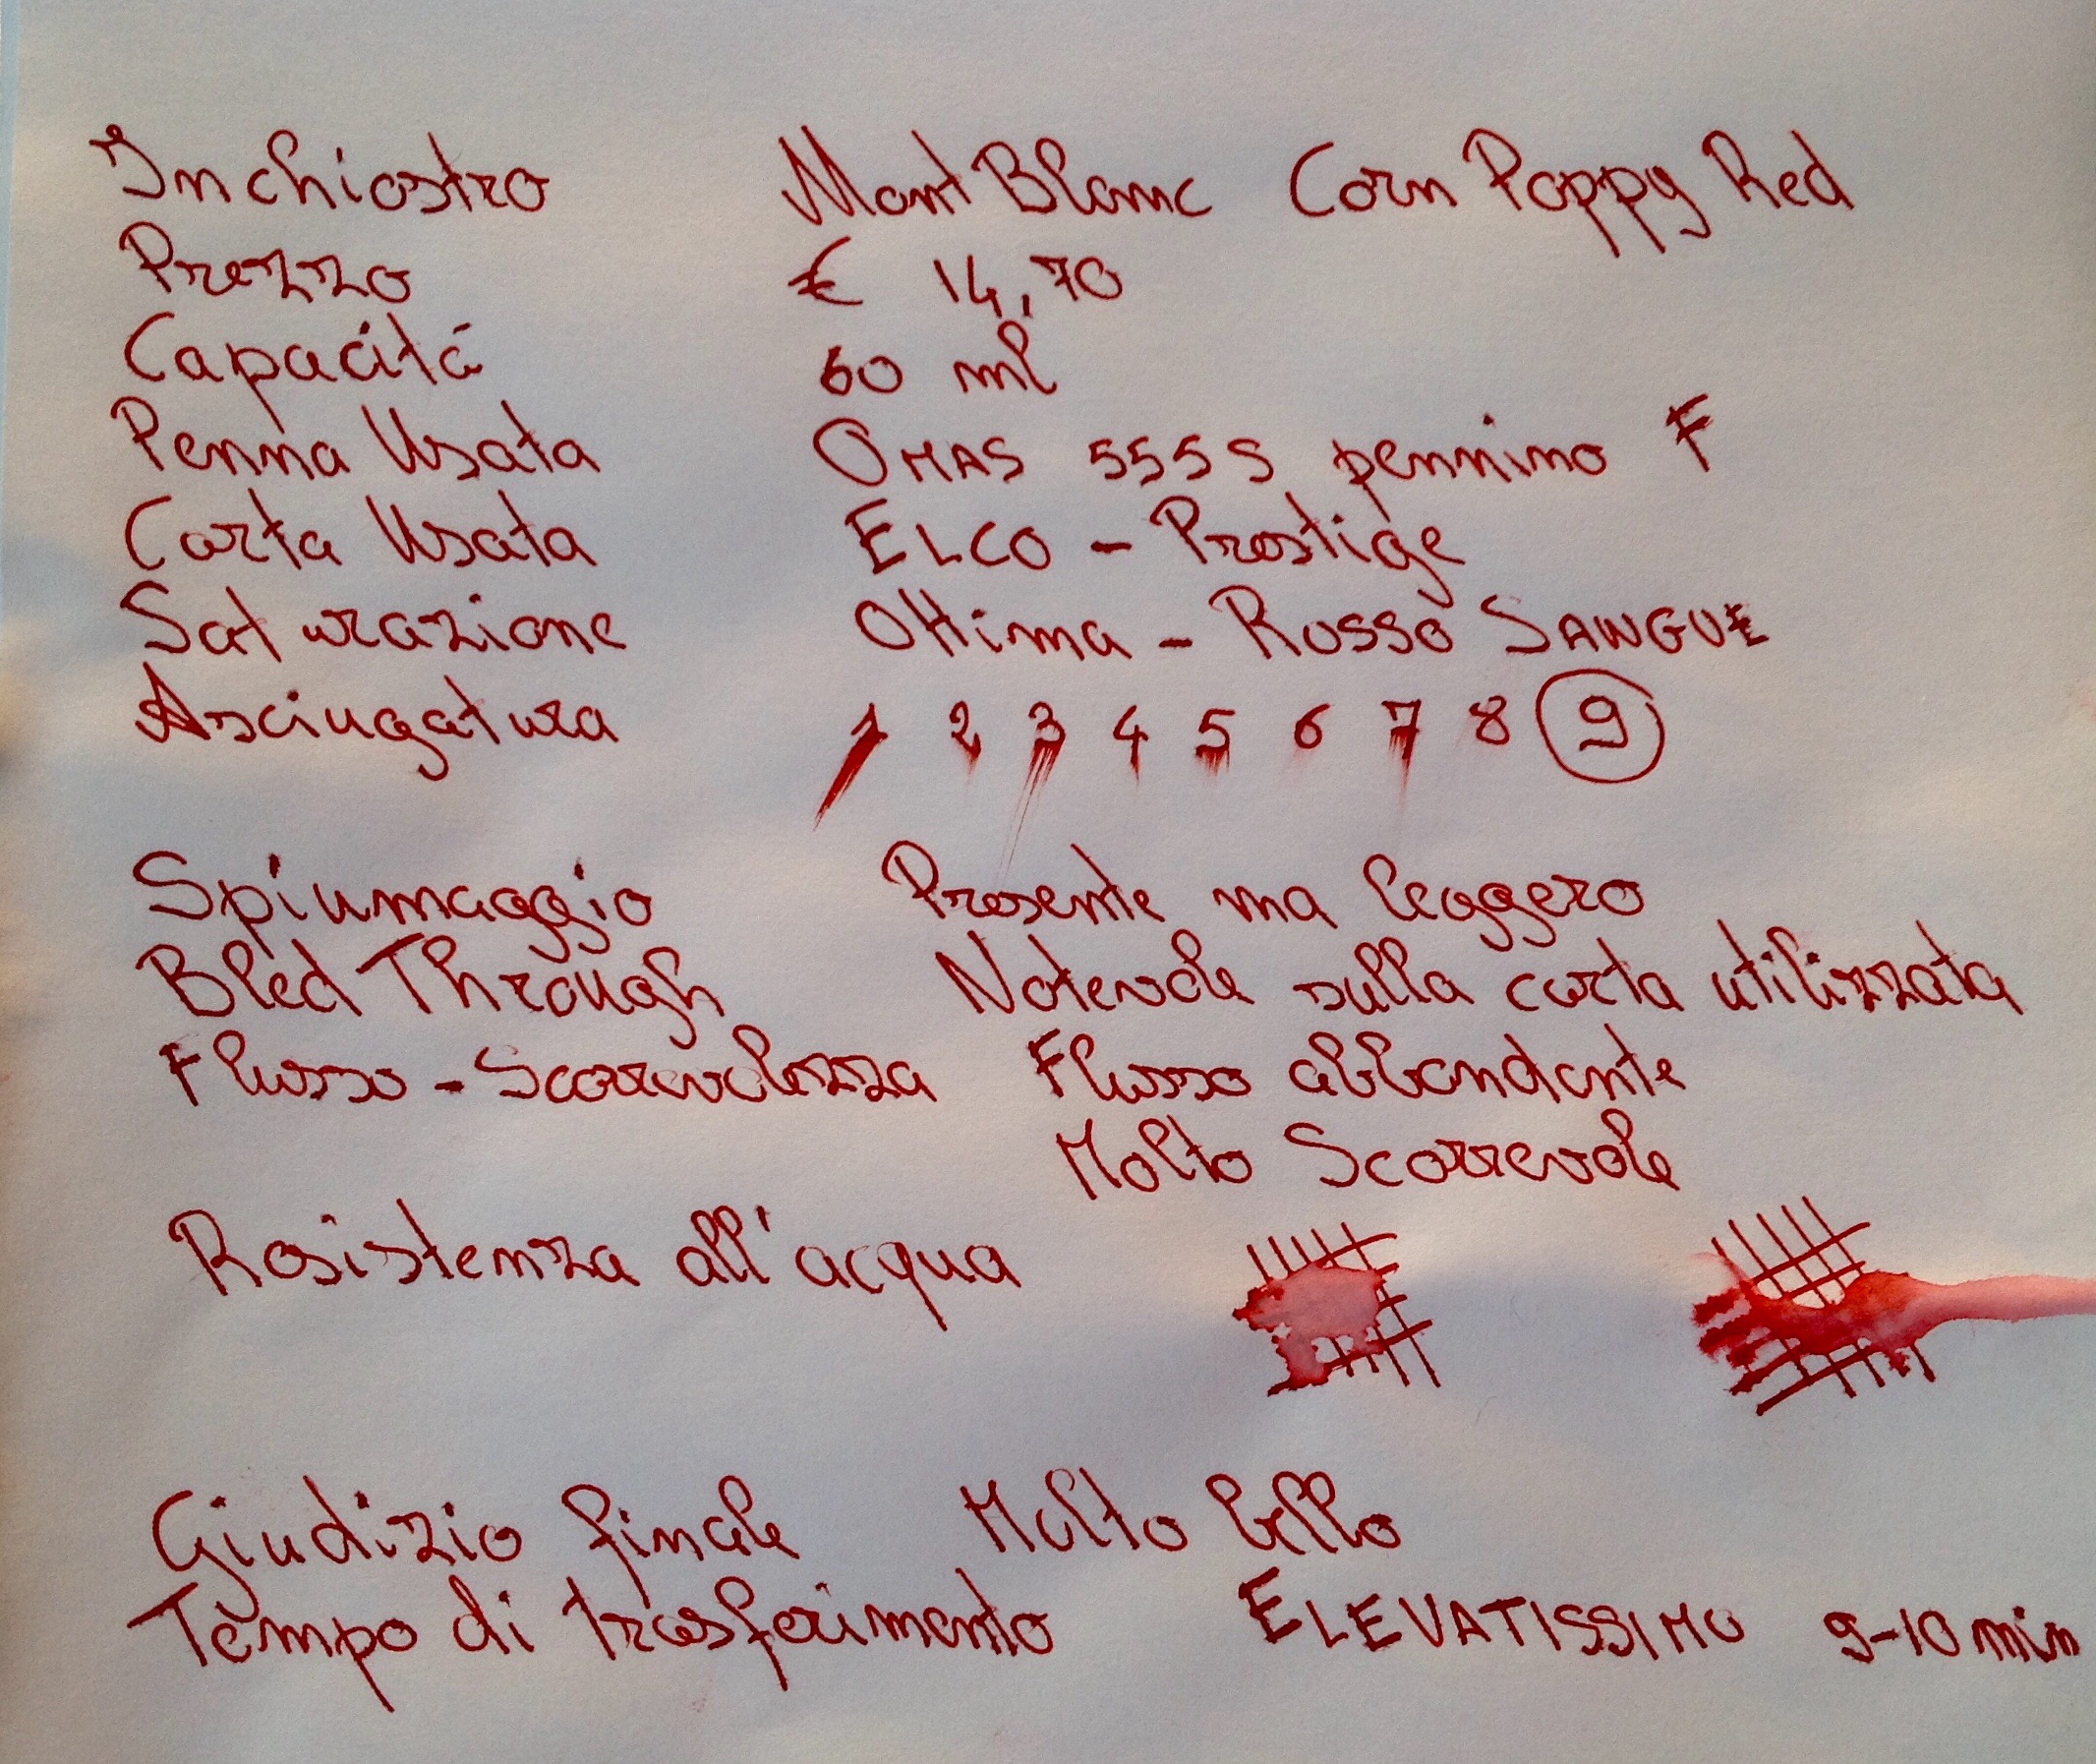 Inchiostro MontBlanc Corn Poppy Red
Prezzo € 14,70
Capacità 60 ml
Penna Usata OMAS 555 S pennino F
Carta Usata ELCO - Prestige
Saturazione Ottima - Rosso SANGUE
Asciugatura 1 2 3 4 5 6 7 8 9
Spiumaggio Presente ma leggero
Bled Through Notevole sulla carta utilizzata
Flusso - Scorrevolezza Flusso abbondante
Molto Scorrevole
Resistenza all'acqua
Giudizio finale Molto bello
Tempo di trasferimento ELEVATISSIMO 9-10 min